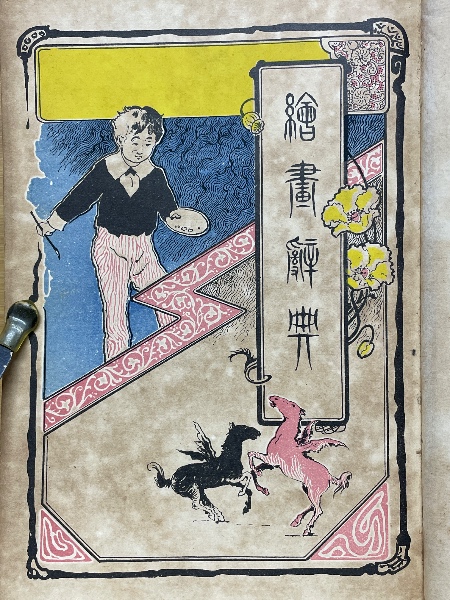 繪畫辭典